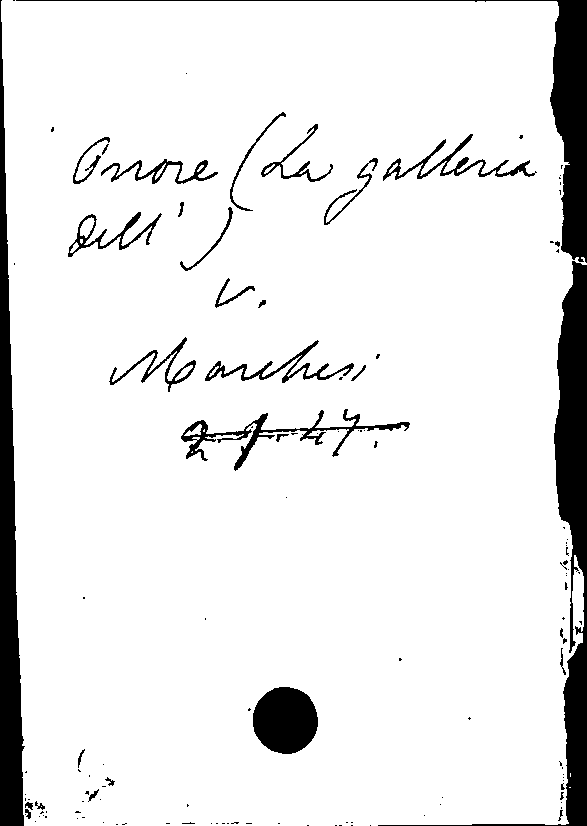 Onore (La galleria
dell')
v.
Marchesi
2. 9. 47.